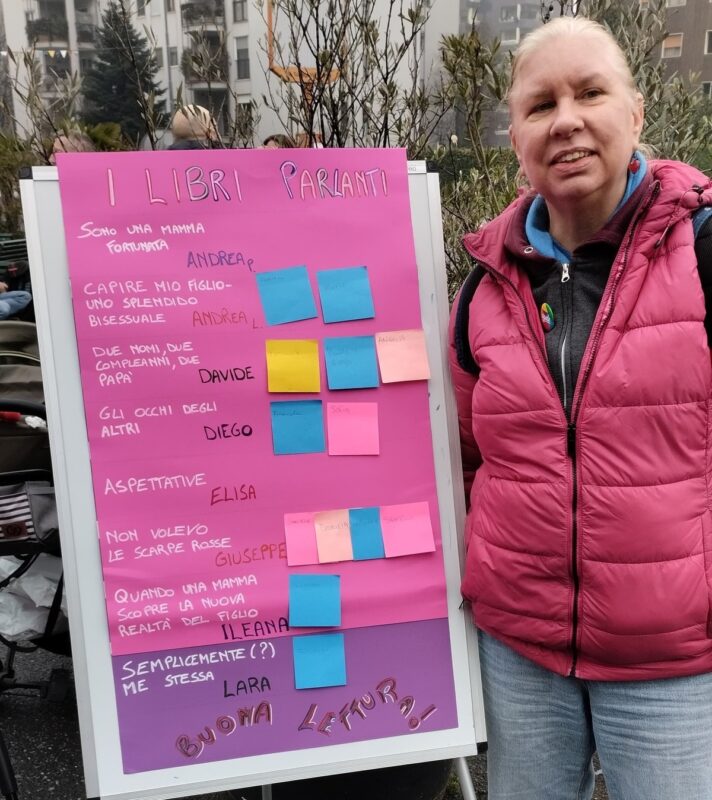 I LIBRI PARLANTI
SONO UNA MAMMA
FORTUNATA
ANDREA P.
CAPIRE MIO FIGLIO-
UNO SPLENDIDO
BISESSUALE ANDREA L.
DUE NOMI, DUE
COMPLEANNI, DUE
PAPA' DAVIDE
GLI OCCHI DEGLI
ALTRI DIEGO
ASPETTATIVE
ELISA
NON VOLEVO
LE SCARPE ROSSE
GIUSEPPE
QUANDO UNA MAMMA
SCOPRE LA NUOVA
REALTÀ DEL FIGLIO
ILEANA
SEMPLICEMENTE (?)
ME STESSA LARA
BUONA LETTURA!